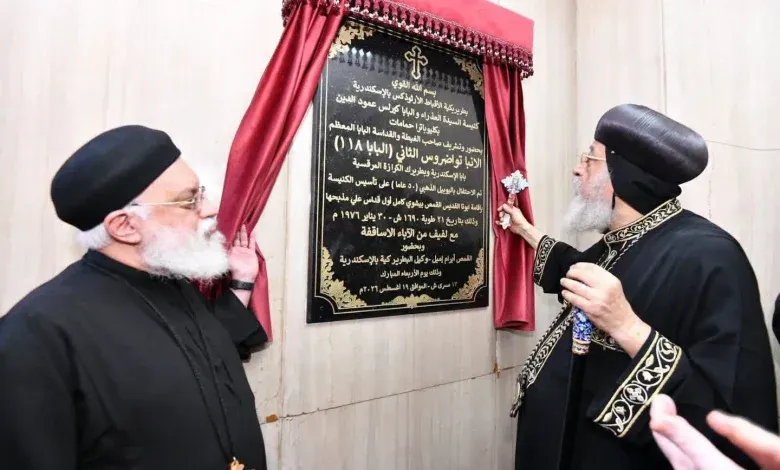 بسم الله القوي
بطريركية الأقباط الأرثوذكس بالإسكندرية
كنيسة السيدة العذراء والبابا كيرلس عمود الدين
بكليوباترا حمامات
بحضور وتشريف صاحب الغبطة والقداسة البابا المعظم
الأنبا تواضروس الثاني (البابا ١١٨)
بابا الإسكندرية وبطريرك الكرازة المرقسية
تم الاحتفال باليوبيل الذهبي (٥٠ عاما) على تأسيس الكنيسة
وإقامة أبونا القديس القمص بيشوي كامل أول قداس علي مذبحها
وذلك بتاريخ ٢١ طوبة ١٦٩٠ ش - ٣٠ يناير ١٩٧٦ م
مع لفيف من الآباء الأساقفة
وبحضور
القمص أبرام إميل - وكيل البطريركية بالإسكندرية
وذلك يوم الأربعاء المبارك
١٣ مسرى ش - الموافق ١٩ أغسطس ٢٠٢٦م